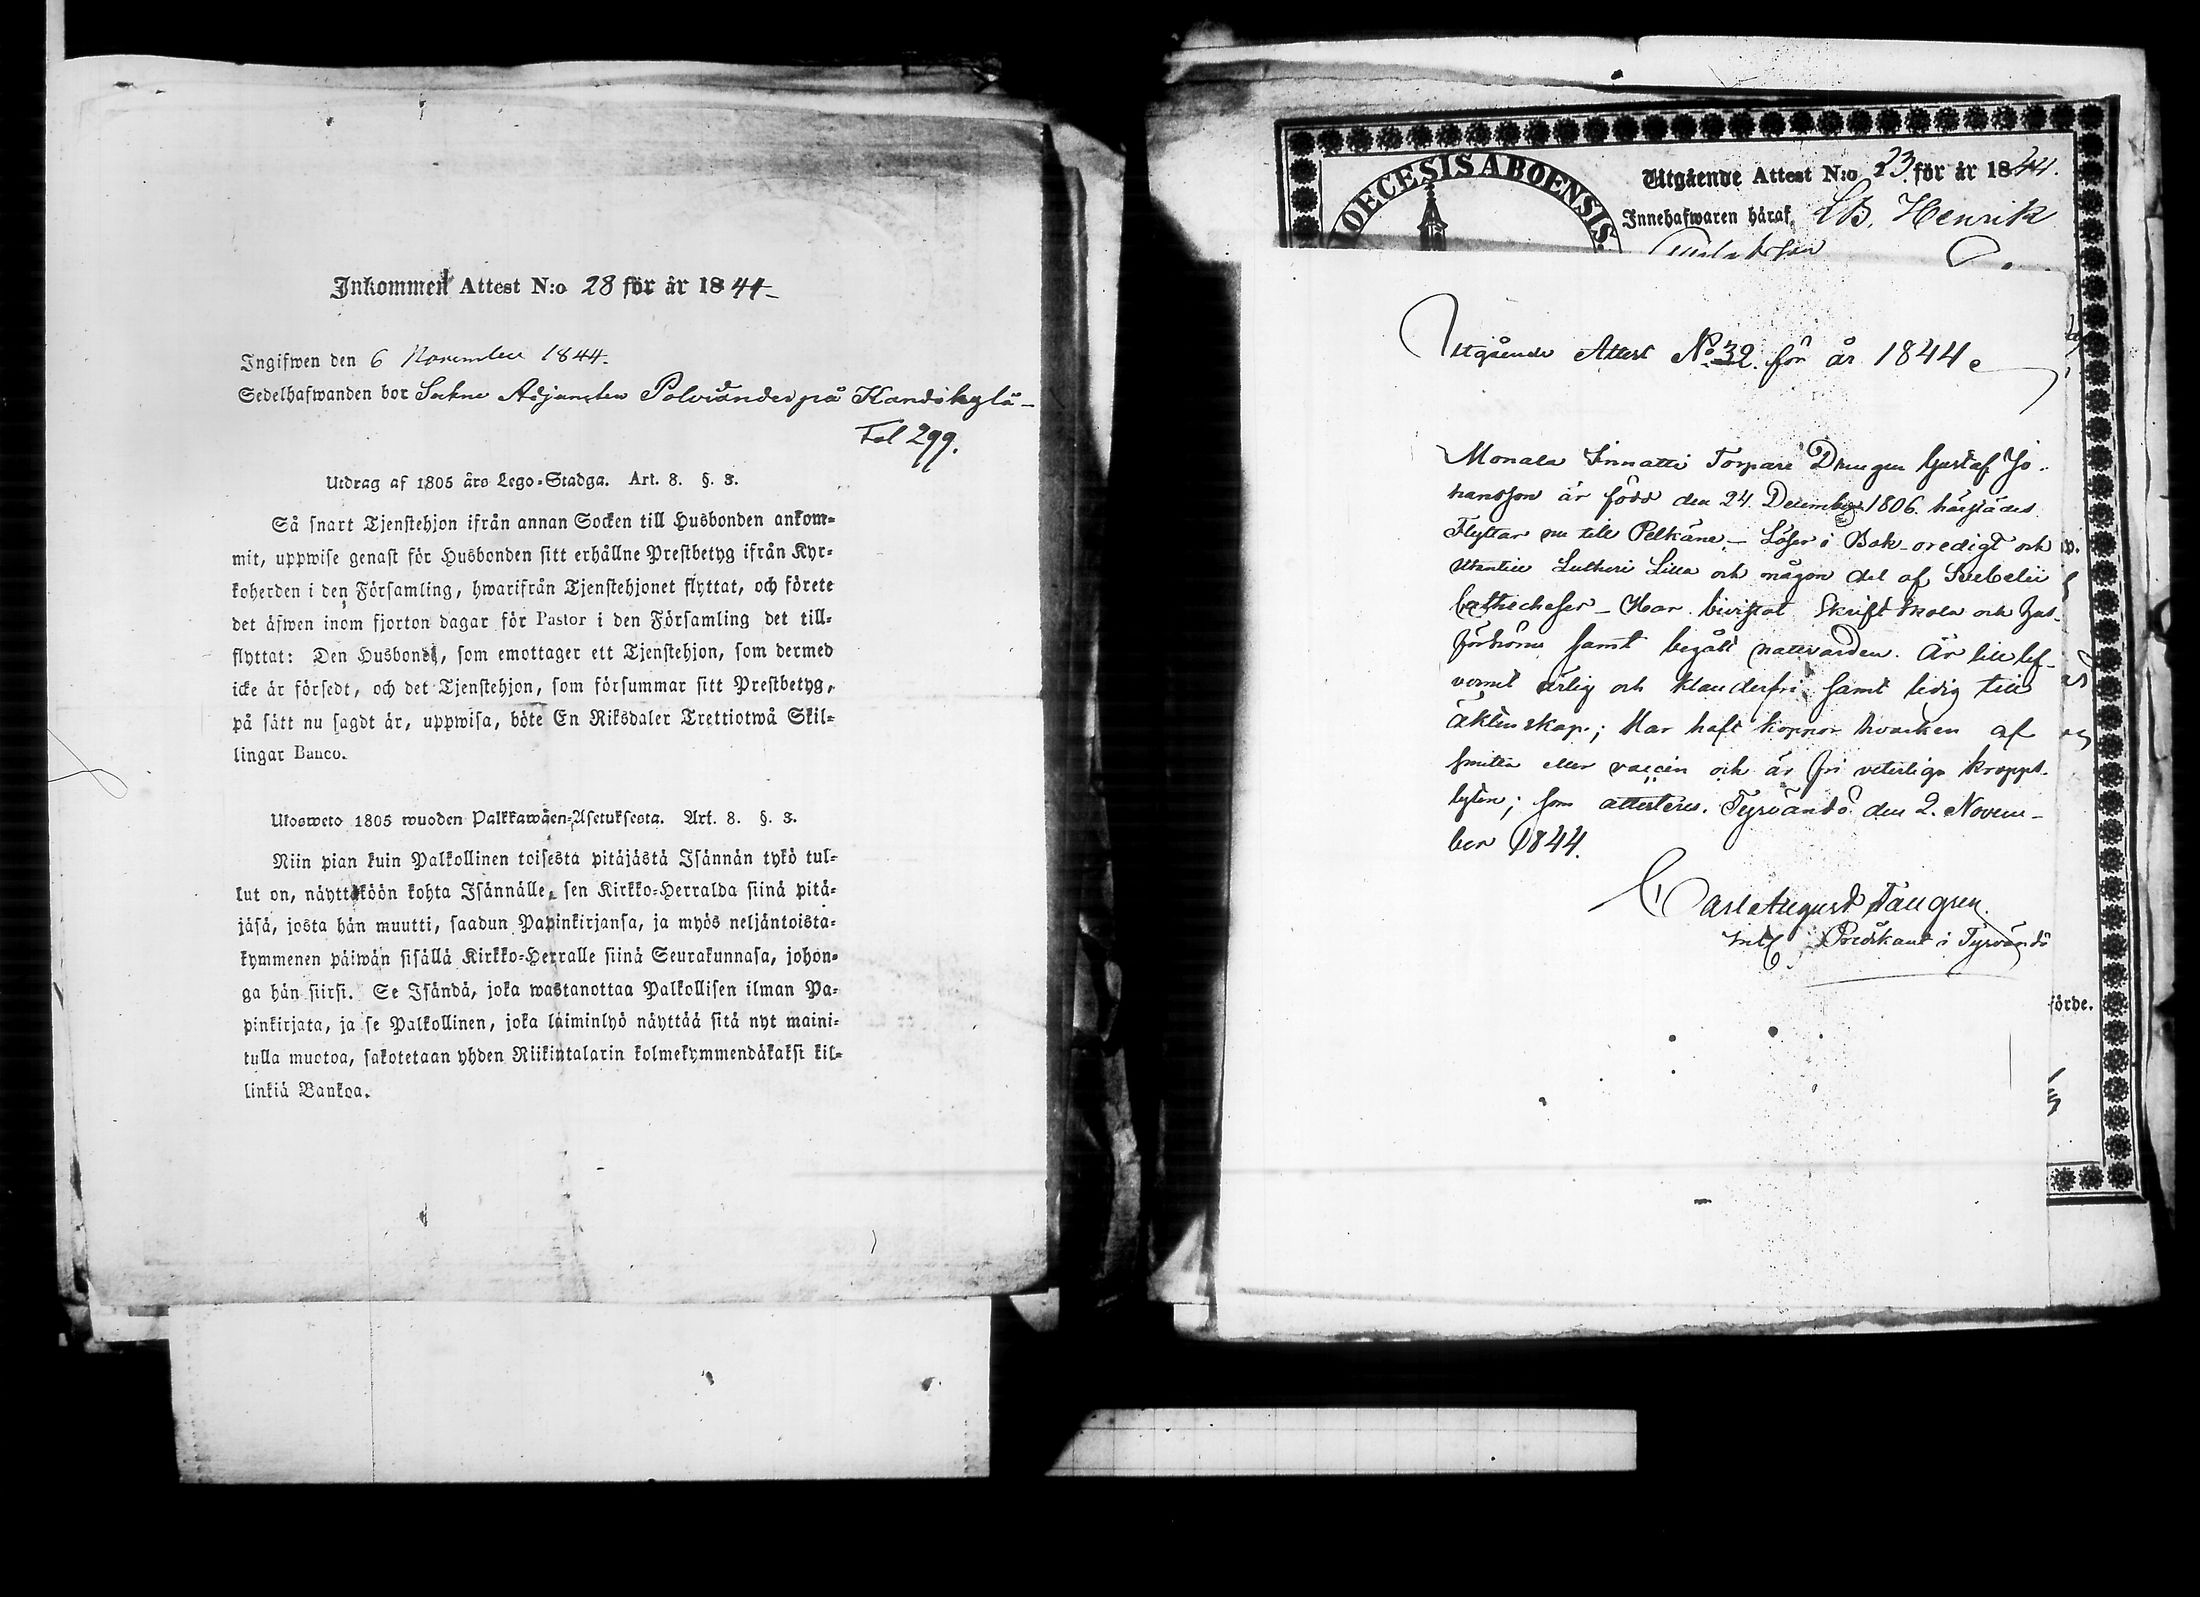 Inkommen Attest N:o 28 för år 1844
Ingifwen den 6 November 1844.
Sedelhafwanden bor Sockne Adjuncten Polviander på Kandikylä
Fol 299.
Utdrag af 1805 års Lego-Stadga. Art. 8. §. 3.
Så snart Tjenstehjon ifrån annan Socken till Husbonden ankom-
mit, uppwise genast för Husbonden sitt erhållne Prestbetyg ifrån Kyr-
koherden i den Församling, hwarifrån Tjenstehjonet flyttat, och förete
det äfwen inom fjorton dagar för Pastor i den Församling det till-
flyttat: Den Husbonde, som emottager ett Tjenstehjon, som dermed
icke är försedt, och det Tjenstehjon, som försummar sitt Prestbetyg,
på sätt nu sagdt är, uppwisa, böte En Riksdaler Trettiotwå Skil-
lingar Banco.
Ulosweto 1805 wuoden Palkkawäen-Asetuksesta. Art. 8. §. 3.
Niin pian kuin Palkollinen toisesta pitäjästä Isännän tykö tul-
lut on, näyttäköön kohta Isännälle, sen Kirkko-Herralda siinä pitä-
jäsä, josta hän muutti, saadun Papinkirjansa, ja myös neljäntoista-
kymmenen päiwän sisällä Kirkko-Herralle siinä Seurakunnasa, johon-
ga hän siirsi. Se Isändä, joka wastanottaa Palkollisen ilman Pa-
pinkirjata, ja se Palkollinen, joka laiminlyö näyttää sitä nyt maini-
tulla muotoa, sakotetaan yhden Riikintalarin kolmekymmendäkaksi kil-
linkiä Bankoa.
OECESIS ABOENSIS.
Utgående Attest N:o 23 för år 1844.
Innehafwaren häraf, Henrik
Utgående Attest No. 32 för år 1844
Monala Torpare Drengen Gustaf Jo-
hansson är född den 24 December 1806 härstädes
Flyttar nu till Pelkäne - Läser i Bok oredigt och
utantill Lutheri Lilla och någon del af Svebelii
Cathecheser - Har bivistat Skriftskola och Hus-
förhören samt begått nattvarden. Är till lef-
vernet ärlig och klanderfri samt ledig till
äktenskap; Har haft koppor hvarken af
smitta eller vaccin och är fri veterliga kropps-
lyten; som attesteres. Tyrvändö den 2. Novem-
ber 1844.
Carl August Tangren
Predikant i Tyrvändö
förde.